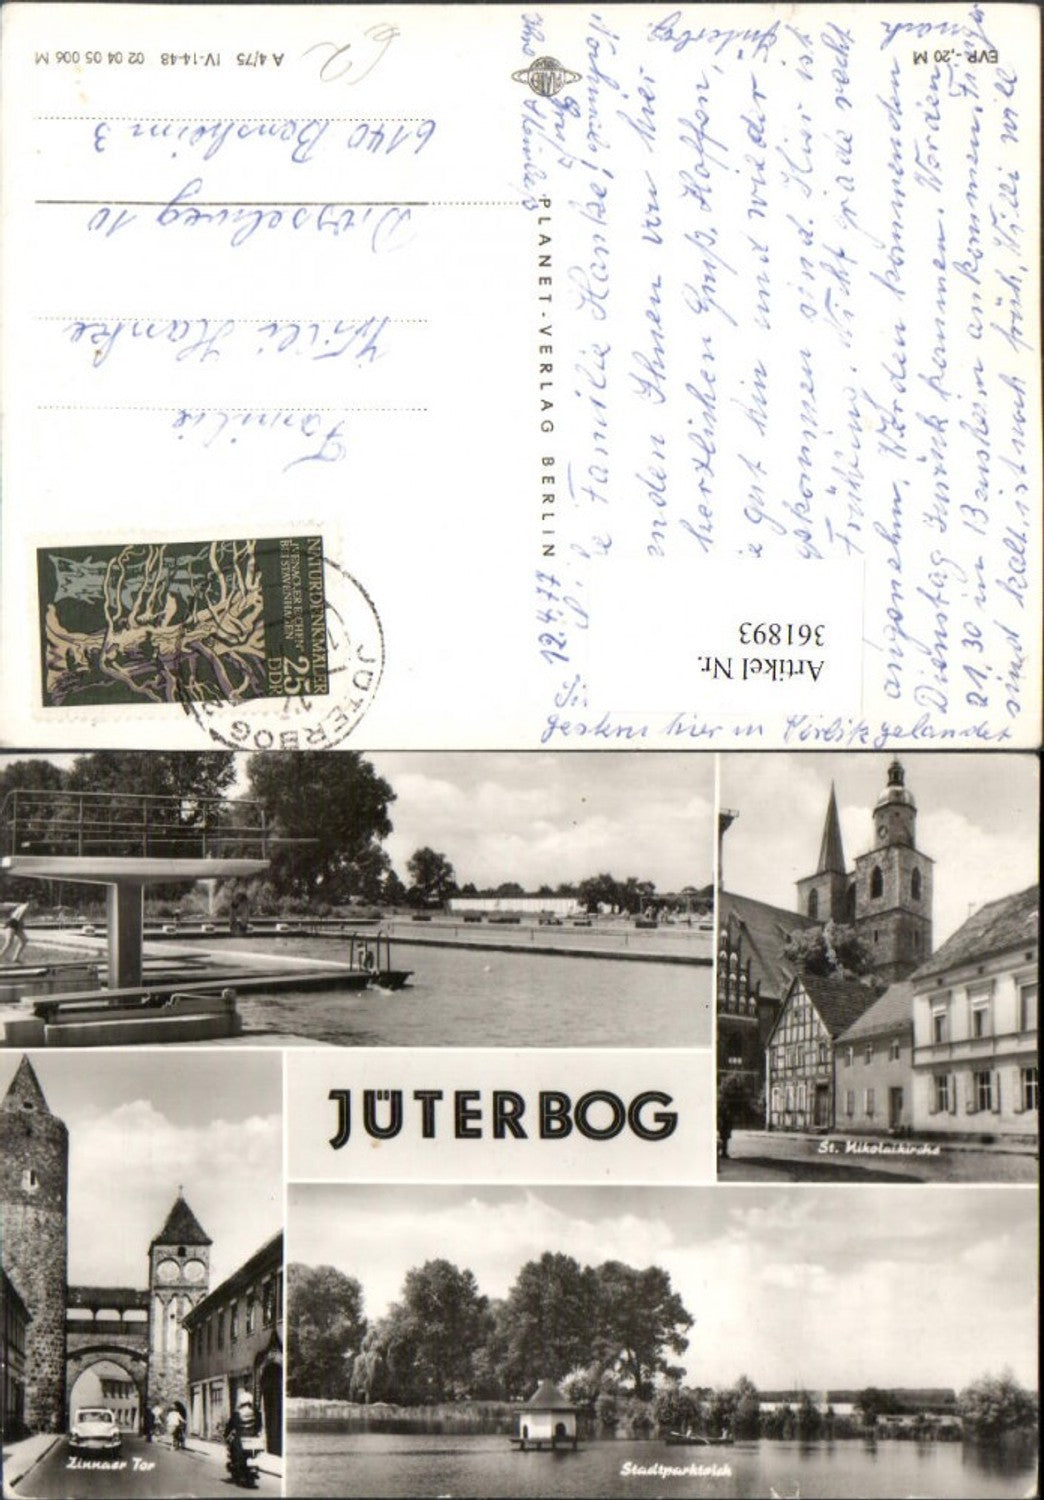 EVP -,20 M
A 4/75 IV-14-48 02 04 05 006 M
PLANET-VERLAG BERLIN
PLANET
Familie
Willi Hanke
10
6140 Bensheim 3
NATURDENKMÄLER
IVENACKER EICHEN
BEI STAVENHAGEN
25
DDR
JÜTERBOG
Artikel Nr.
361893
12.4.77
Familie Hanke!
Ihnen von hier
herzlichen Gruß. Hoffen,
gut hin und wieder
sind. Hier ist
Nicht grade recht
angenehm. Werden kommenden
Dienstag zurück kommen. Werden
21.30 in Bensheim ankommen.
sind kalt ist noch früh. Willi will
gestern hier in gelandet
JÜTERBOG
St. Nikolaikirche
Zinnaer Tor
Stadtparkteich